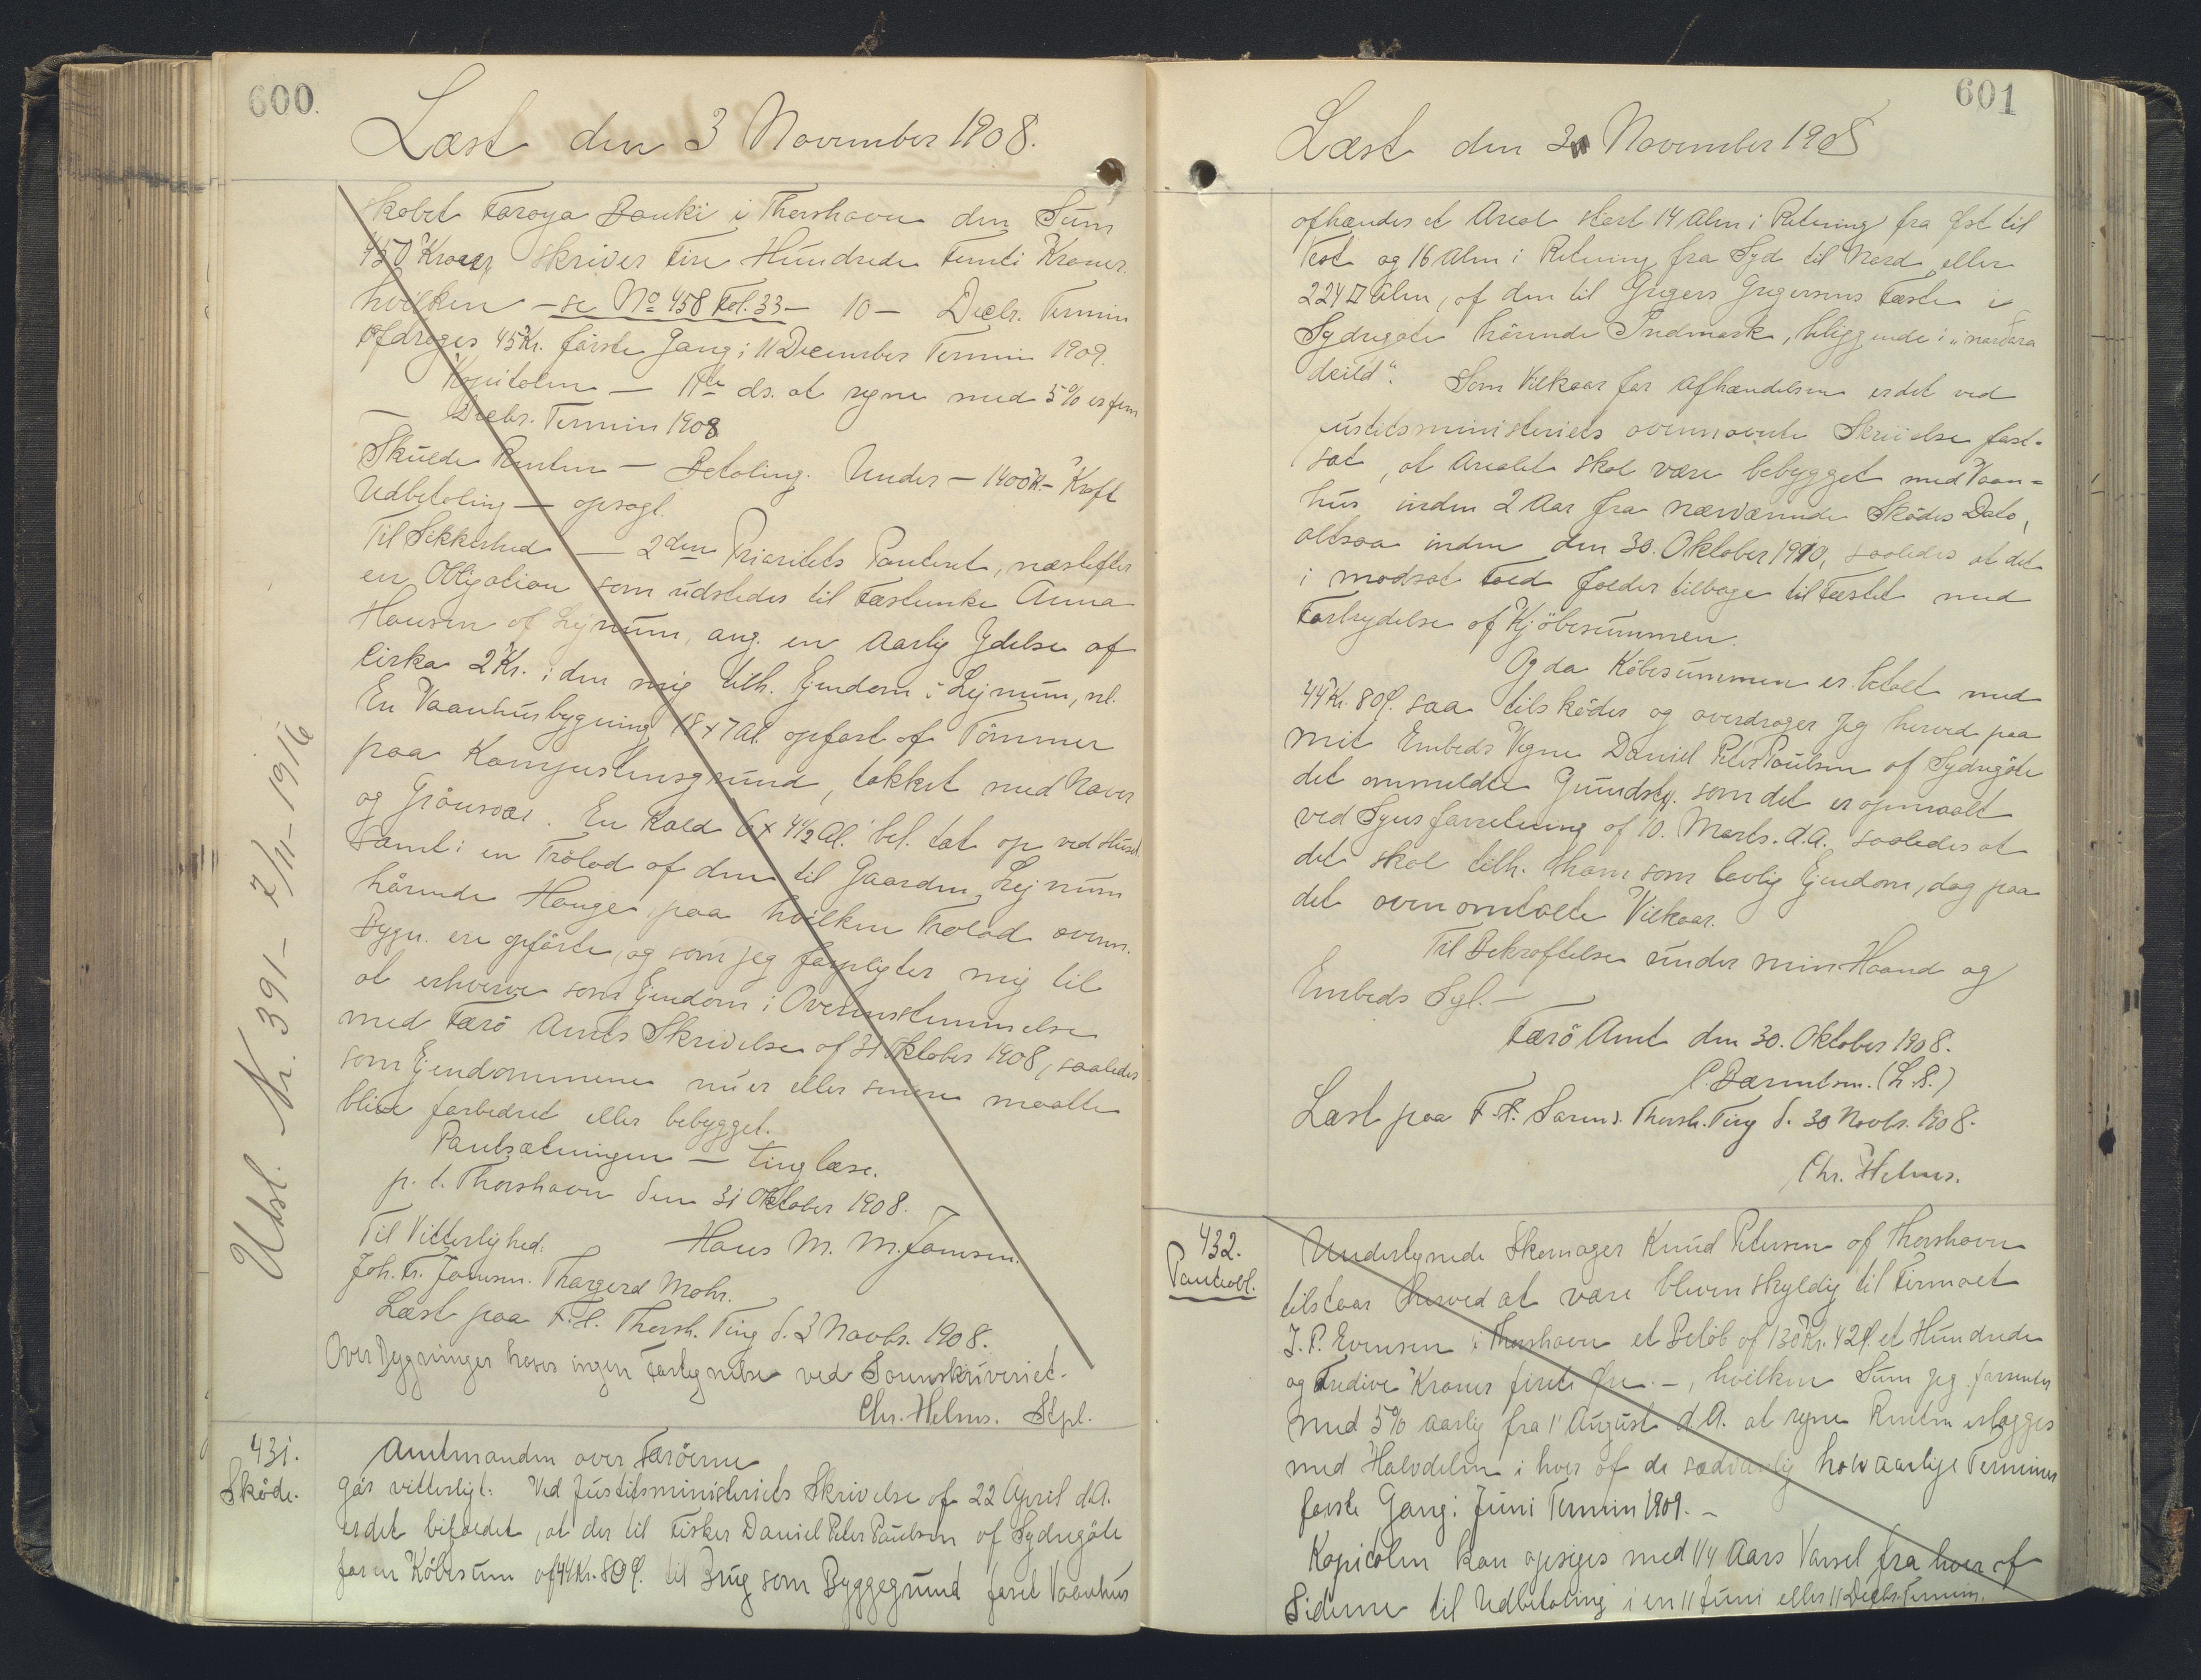 600.
Læst den 3 November 1908.
skabet Føroya Banki i Thorshavn den Sum
450 Kroner, skriver Fire Hundrede Femti Kroner.
hvilken – se No 458 Fol. 33 – 10 – Decbr. Termin
afdrages 45 Kr. første Gang i 11 December Termin 1909.
Kapitalen – 11te ds. at regne med 5% er fem
– Decbr. Termin 1908
Skulde Renten – Betaling. Under – 1400 Kr – Kraft
Udbetaling – opsagt.
Til Sikkerhed – 2den Prioritets Panteret, næstefter
en Obligation som udstedes til Fæsteenke Anna
Hansen af Lejnum, ang. en aarlig Ydelse af
cirka 2 Kr. i den mig tilh. Ejendom i Lejnum, nl.
En Vaanhusbygning 18 x 7 Al. opført af Tømmer
paa Kampestensgrund, tækket med Næver
og Grönsvær. En Kald 6 x 4½ Al. bel. tæt op ved Huset.
samt i en Trölad af den til Gaarden Lejnum
hørende Hauge, paa hvilken Trölad ovenn.
Bygn. ere opførte, og som jeg forpligter mig til
at erhverve som Ejendom i Overensstemmelse
med Færö Amts Skrivelse af 31 Oktober 1908, saaledes
som Ejendommene nu er eller senere maatte
blive forbedret eller bebygget.
Pantsætningen – tinglæse.
p. t. Thorshavn den 31 Oktober 1908.
Hans M. M. Joensen.
Til Vitterlighed:
Joh. Fr. Joensen. Thorgerd Mohr.
Læst paa F. H. Thorsh. Ting d. 3 Novbr. 1908.
Over Bygninger haves ingen Fortegnelse ved Sorenskriveriet.
Chr. Helms. Stpl.
Udsl. Nr. 391 – 7/11 – 1916
431.
Sköde.
Amtmanden over Færöerne
gör vitterligt: Ved Justitsministeriets Skrivelse af 22 April d.A.
er det bifaldet, at der til Fisker Daniel Peter Poulsen af Sydregöte
for en Købesum af 44 Kr. 80 Ø. til Brug som Byggegrund for et Vaanhus
601
Læst den 30 November 1908
afhændes et Areal stort 14 Alen i Retning fra Øst til
Vest og 16 Alen i Retning fra Syd til Nord, eller
224 □ Alen, af den til Gregers Gregersens Fæste i
Sydregøte hørende Indmark, beliggende i "nordara
deild". Som Vilkaar for Afhændelsen er det ved
Justitsministeriets ovennævnte Skrivelse fast-
sat, at Arealet skal være bebygget med Vaan=
hus inden 2 Aar fra nærværende Skødes Dato,
altsaa inden den 30. Oktober 1910, saaledes at det
i modsat Fald falder tilbage til Fæstet med
Fortrydelse af Kjöbesummen.
Og da Købesummen er betalt med
44 Kr. 80 Ø. saa tilsköder og overdrager jeg herved paa
mit Embeds Vegne Daniel Peter Poulsen af Sydregöte
det ommeldte Grundsty. som det er opmaalt
ved Synsforretning af 10. Marts. d.A. saaledes at
det skal tilh. Ham som lovlig Ejendom, dog paa
det ovenomtalte Vilkaar.
Til Bekræftelse under min Haand og
Embeds Segl. –
Færö Amt den 30. Oktober 1908.
C. Bærentsen. (L. S.)
Læst paa F. H. Sorens. Thorsh. Ting d. 30 Novbr. 1908.
Chr. Helms.
432.
Panteobl.
Undertegnede Skomager Knud Petersen af Thorshavn
tilstaar herved at være bleven skyldig til Firmaet
J. P. Evensen i Thorshavn et Beløb af 130 Kr. 42 Ø. et Hundrede
og Tredive Kroner Øre. –, hvilken Sum jeg forrenter
med 5% aarlig fra 1' August d.A. at regne Renten erlægges
med Halvdelen i hver af de sædvanlig halvaarlige Terminer
første Gang i Juni Termin 1909. –
Kapitalen kan opsiges med 1/4 Aars Varsel fra hver af
Siderne til Udbetaling i en 11 Juni eller 11 Decbr. Termin.